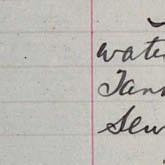 wate
Tan
Sew